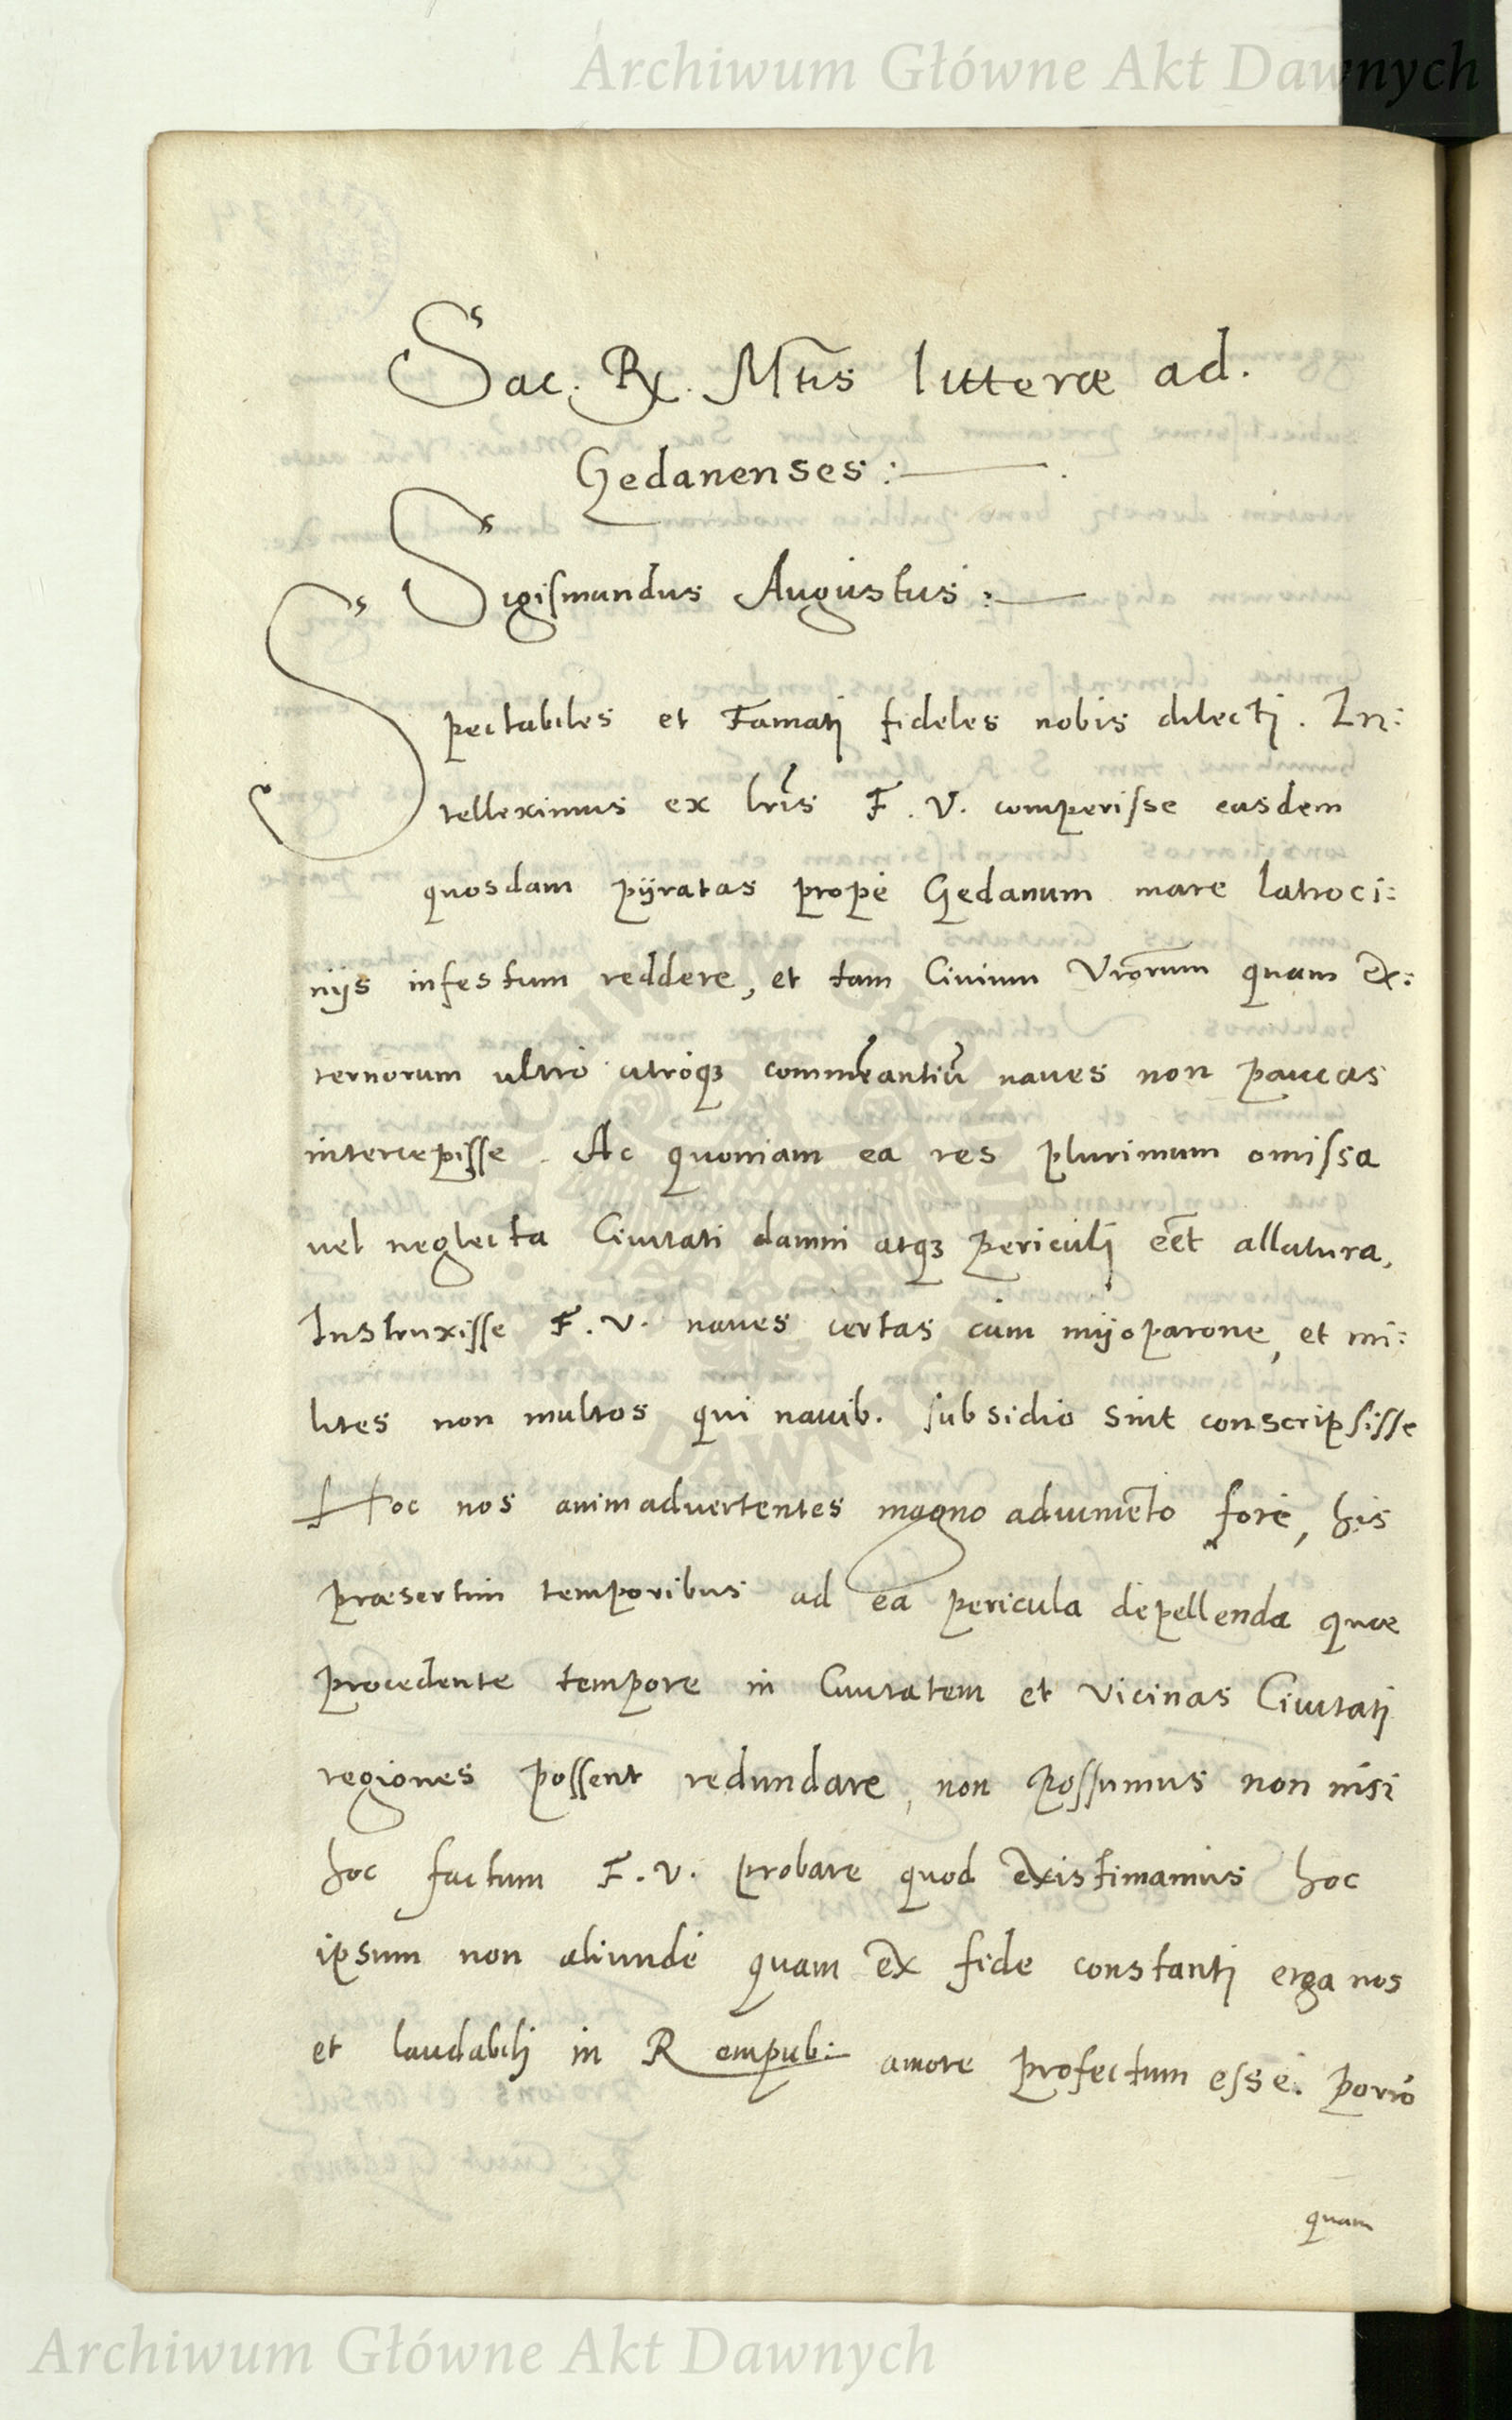 Archiwum Główne Akt Dawnych
Sac. Rx. Mtis litteræ ad.
Gedanenses:
Sigismundus Augustus:
Spectabiles et Famati fideles nobis dilecti. In:
telleximus ex lris F. V. comperisse easdem
quosdam pÿratas propè Gedanum mare latroci:
nijs infestum reddere, et tam Civium Vrorum quam Ex:
ternorum ultrò citròq3 commeantiũ naves non paucas
intercepisse. Ac quoniam ea res plurimum omissa
vel neglecta Civitati damni atq3 periculi eet allatura,
Instruxisse F. V. naves certas cùm mÿoparone, et mi:
lites non multos qui navib. subsidio sint conscripsisse
Hoc nos animadvertentes magno adiumẽto forè, his
præsertim temporibus ad ea pericula depellenda quæ
procedente tempore in Civitatem et vicinas Civitati
regiones possent redundare, non possumus non nisi
hoc factum F. V. probare quod Existimamus hoc
ipsum non aliundè quam Ex fide constanti erga nos
et laudabili in Rempub: amore profectum esse. porrò
quam
Archiwum Główne Akt Dawnych